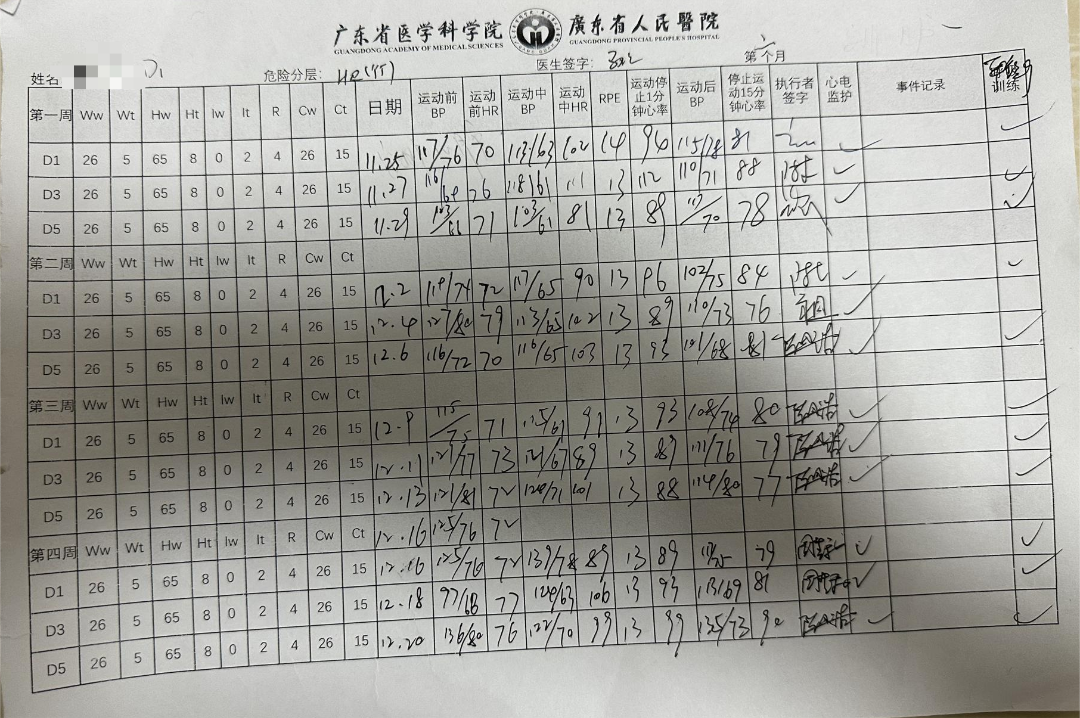 广东省医学科学院 廣东省人民醫院
GUANGDONG ACADEMY OF MEDICAL SCIENCES GUANGDONG PROVINCIAL PEOPLE'S HOSPITAL
姓名 危险分层: 医生签字: 第六个月
第一周 Ww Wt Hw Ht Iw It R Cw Ct 日期 运动前BP 运动前HR 运动中BP 运动中HR RPE 运动停止1分钟心率 运动后BP 停止运动15分钟心率 执行者签字 心电监护 事件记录 训练
D1 26 5 65 8 0 2 4 26 15 11.25 117/76 70 113/63 102 14 94 115/78 81 ✓ ✓
D3 26 5 65 8 0 2 4 26 15 11.27 116/68 76 118/61 111 13 112 110/71 88 ✓ ✓
D5 26 5 65 8 0 2 4 26 15 11.29 103/61 71 103/61 81 13 89 117/70 78 ✓ ✓
第二周 Ww Wt Hw Ht Iw It R Cw Ct
D1 26 5 65 8 0 2 4 26 15 12.2 119/74 72 117/65 90 13 96 102/75 84 ✓ ✓
D3 26 5 65 8 0 2 4 26 15 12.4 127/80 79 113/65 102 13 89 110/73 76 ✓
D5 26 5 65 8 0 2 4 26 15 12.6 116/72 70 116/65 103 13 93 101/68 81 ✓ ✓
第三周 Ww Wt Hw Ht Iw It R Cw Ct
D1 26 5 65 8 0 2 4 26 15 12.9 115/75 71 115/61 91 13 93 108/74 80 ✓ ✓
D3 26 5 65 8 0 2 4 26 15 12.11 127/77 73 121/67 89 13 89 111/76 79 ✓ ✓
D5 26 5 65 8 0 2 4 26 15 12.13 121/81 72 124/71 101 13 88 114/80 77 ✓ ✓
第四周 Ww Wt Hw Ht Iw It R Cw Ct 12.16 125/76 72
D1 26 5 65 8 0 2 4 26 15 12.16 125/76 72 139/78 89 13 89 79 ✓ ✓
D3 26 5 65 8 0 2 4 26 15 12.18 97/68 77 124/63 106 13 93 113/69 81 ✓ ✓
D5 26 5 65 8 0 2 4 26 15 12.20 136/80 76 122/70 99 13 99 135/73 90 ✓ ✓